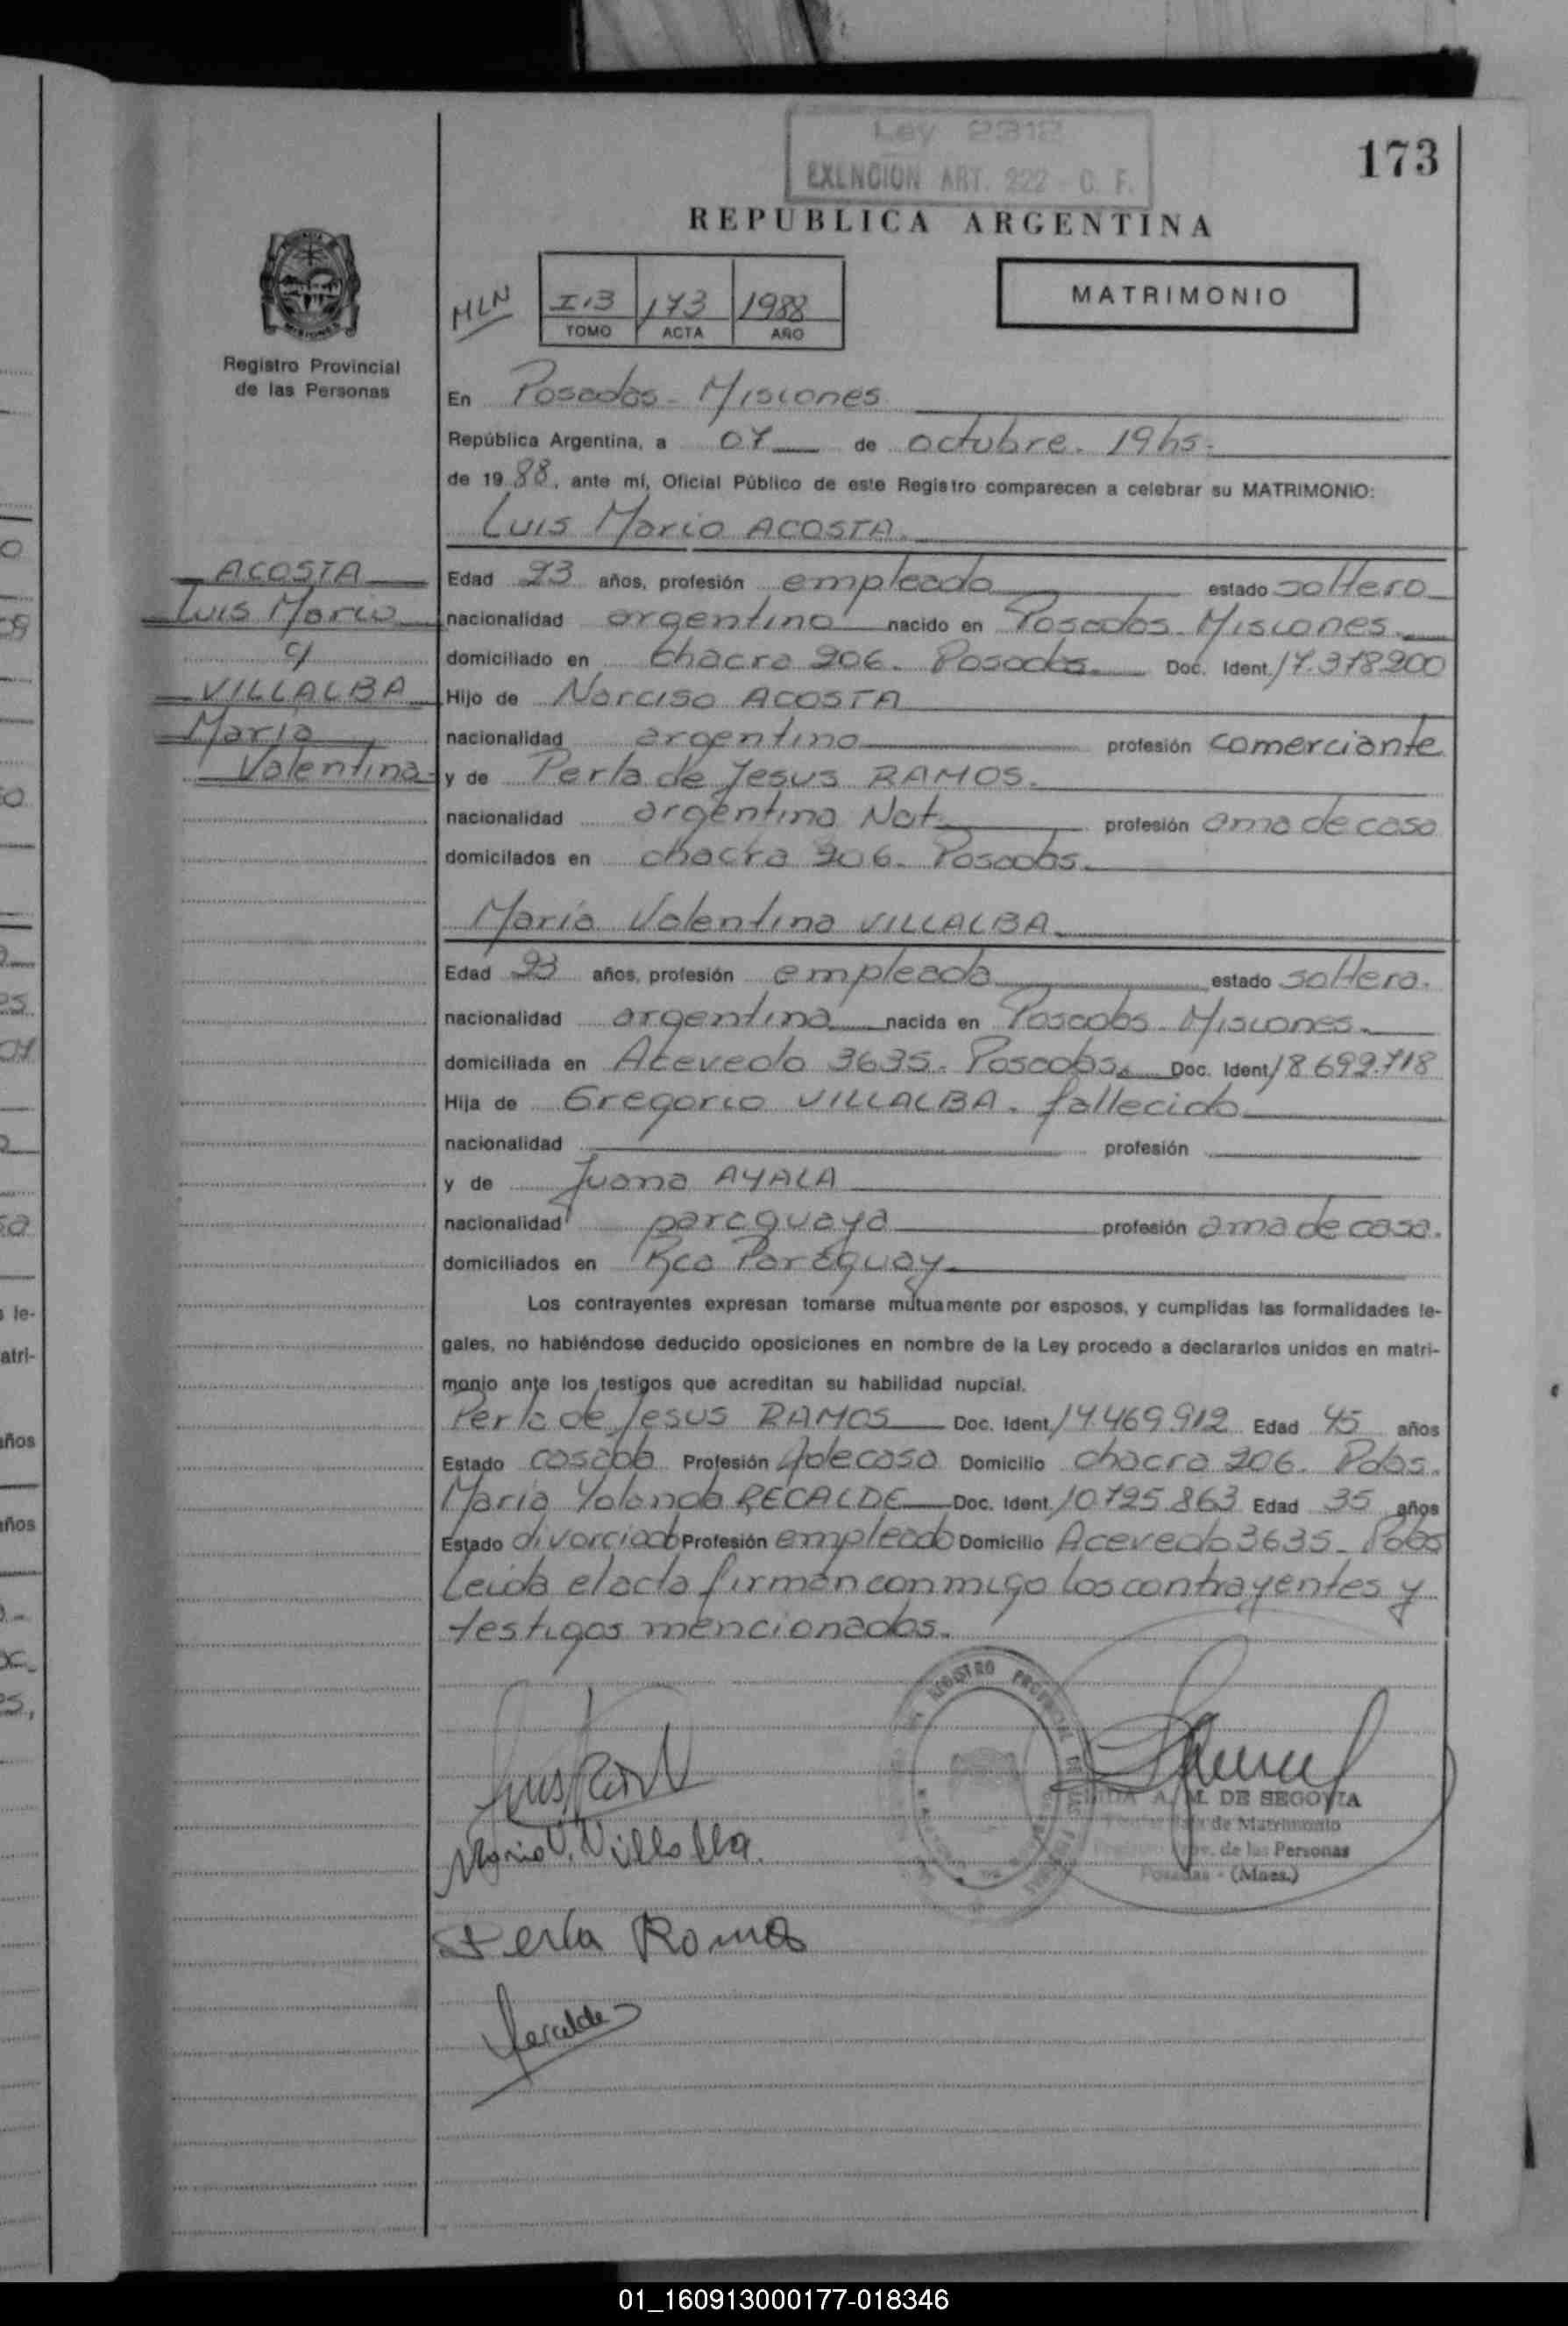 Ley 2312
EXENCION ART. 222 - C. F.
173
REPUBLICA ARGENTINA
MLN
I.B 173 1988
TOMO ACTA AÑO
MATRIMONIO
MISIONES
Registro Provincial
de las Personas
En Posadas - Misiones
República Argentina, a 07 de octubre. 19hs.
de 19 88, ante mí, Oficial Público de este Registro comparecen a celebrar su MATRIMONIO:
Luis Mario ACOSTA.
ACOSTA
Luis Mario
c/
VILLALBA
María
Valentina
Edad 23 años, profesión empleado estado soltero
nacionalidad argentino nacido en Posadas Misiones.
domiciliado en chacra 206. Posadas. Doc. Ident. 17.378200
Hijo de Narciso ACOSTA
nacionalidad argentino profesión comerciante
y de Perla de Jesus RAMOS.
nacionalidad argentina Nat. profesión ama de casa
domicilados en chacra 206. Posadas.
María Valentina VILLALBA
Edad 23 años, profesión empleada estado soltera.
nacionalidad argentina nacida en Posadas Misiones.
domiciliada en Acevedo 3635. Posadas. Doc. Ident. 18.692.718
Hija de Gregorio VILLALBA. fallecido
nacionalidad profesión
y de Juana AYALA
nacionalidad paraguaya profesión ama de casa.
domiciliados en Rca Paraguay
Los contrayentes expresan tomarse mútuamente por esposos, y cumplidas las formalidades le-
gales, no habiéndose deducido oposiciones en nombre de la Ley procedo a declararlos unidos en matri-
monio ante los testigos que acreditan su habilidad nupcial.
Perla de Jesus RAMOS Doc. Ident. 14.469.912 Edad 45 años
Estado casada Profesión A de casa Domicilio chacra 206. Pdas.
María Yolanda RECALDE Doc. Ident. 10.725.863 Edad 35 años
Estado divorciada Profesión empleada Domicilio Acevedo 3635. Pdas
Leida el acta firman conmigo los contrayentes y
testigos mencionados.
REGISTRO PROVINCIAL DE LAS
A. M. DE SEGOVIA
de Matrimonio
Prov. de las Personas
Posadas - (Mnes.)
Maria V. Villalba
Perla Ramos
Recalde
01_160913000177-018346